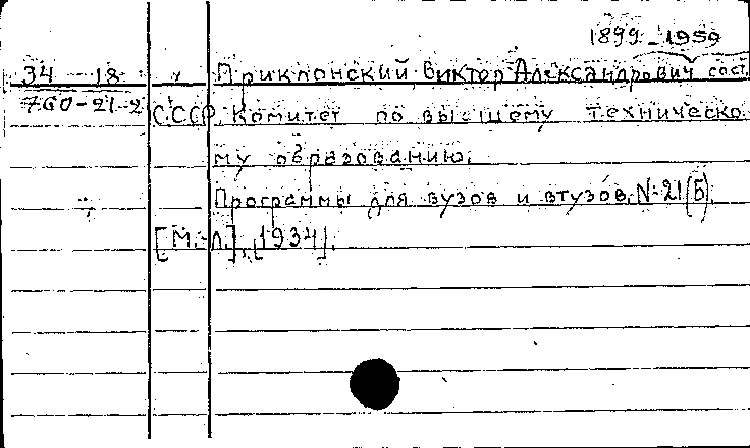 1899-1959
34-18 Приклонский, Виктор Александрович, сост.
760-21-2 СССР. Комитет по высшему техническо-
му образованию.
Программы для вузов и втузов, № 21 (Б).
[М.-Л.], [1934].